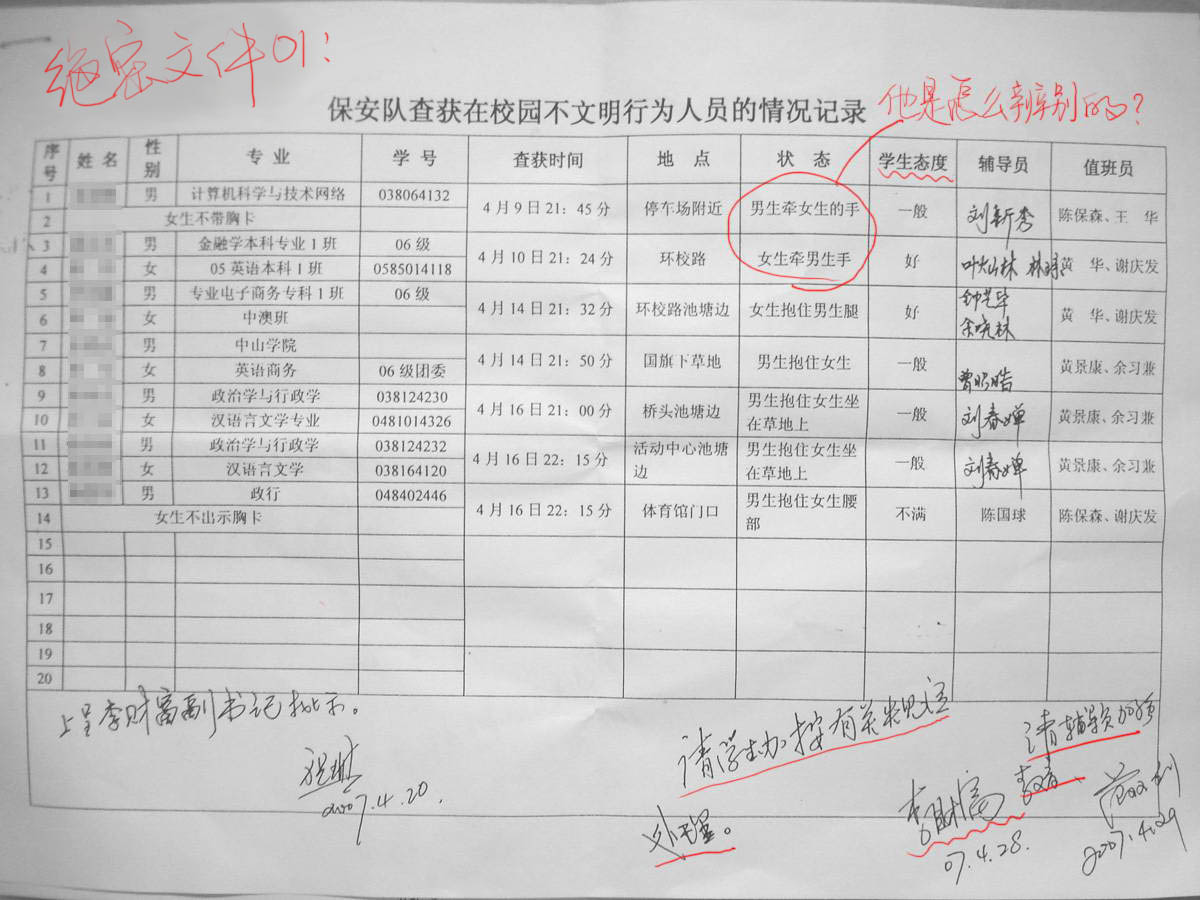 绝密文件01:
他是怎么辨别的?
保安队查获在校园不文明行为人员的情况记录
序号 姓名 性别 专业 学号 查获时间 地点 状态 学生态度 辅导员 值班员
1 男 计算机科学与技术网络 038064132 4月9日21:45分 停车场附近 男生牵女生的手 一般 刘新秀 陈保森、王 华
2 女生不带胸卡
3 男 金融学本科专业1班 06级 4月10日21:24分 环校路 女生牵男生手 好 叶灿林 黄 华、谢庆发
4 女 05英语本科1班 0585014118
5 男 专业电子商务专科1班 06级 4月14日21:32分 环校路池塘边 女生抱住男生腿 好 黄 华、谢庆发
6 女 中澳班 余晓林
7 男 中山学院 4月14日21:50分 国旗下草地 男生抱住女生 一般 黄景康、余习兼
8 女 英语商务 06级团委
9 男 政治学与行政学 038124230 4月16日21:00分 桥头池塘边 男生抱住女生坐在草地上 一般 刘春婵 黄景康、余习兼
10 女 汉语言文学专业 0481014326
11 男 政治学与行政学 038124232 4月16日22:15分 活动中心池塘边 男生抱住女生坐在草地上 一般 刘春婵 黄景康、余习兼
12 女 汉语言文学 038164120
13 男 政行 048402446 4月16日22:15分 体育馆门口 男生抱住女生腰部 不满 陈国球 陈保森、谢庆发
14 女生不出示胸卡
15
16
17
18
19
20
上呈李财富副书记批示。
2007.4.20.
请学生办按有关规定
处理。
李财富
07.4.28.
请辅导员加强
教育
2007.4.29